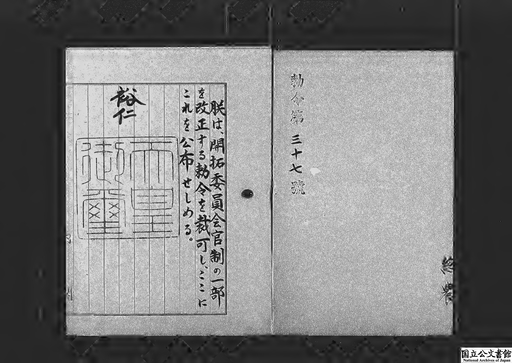 勅令第三十七號
朕は、開拓委員会官制の一部
を改正する勅令を裁可し、ここに
これを公布せしめる。
裕仁
天皇
御璽
国立公文書館
National Archives of Japan